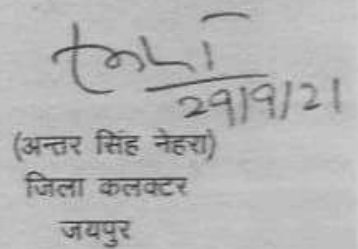 29/9/21
(अन्तर सिंह नेहरा)
जिला कलक्टर
जयपुर